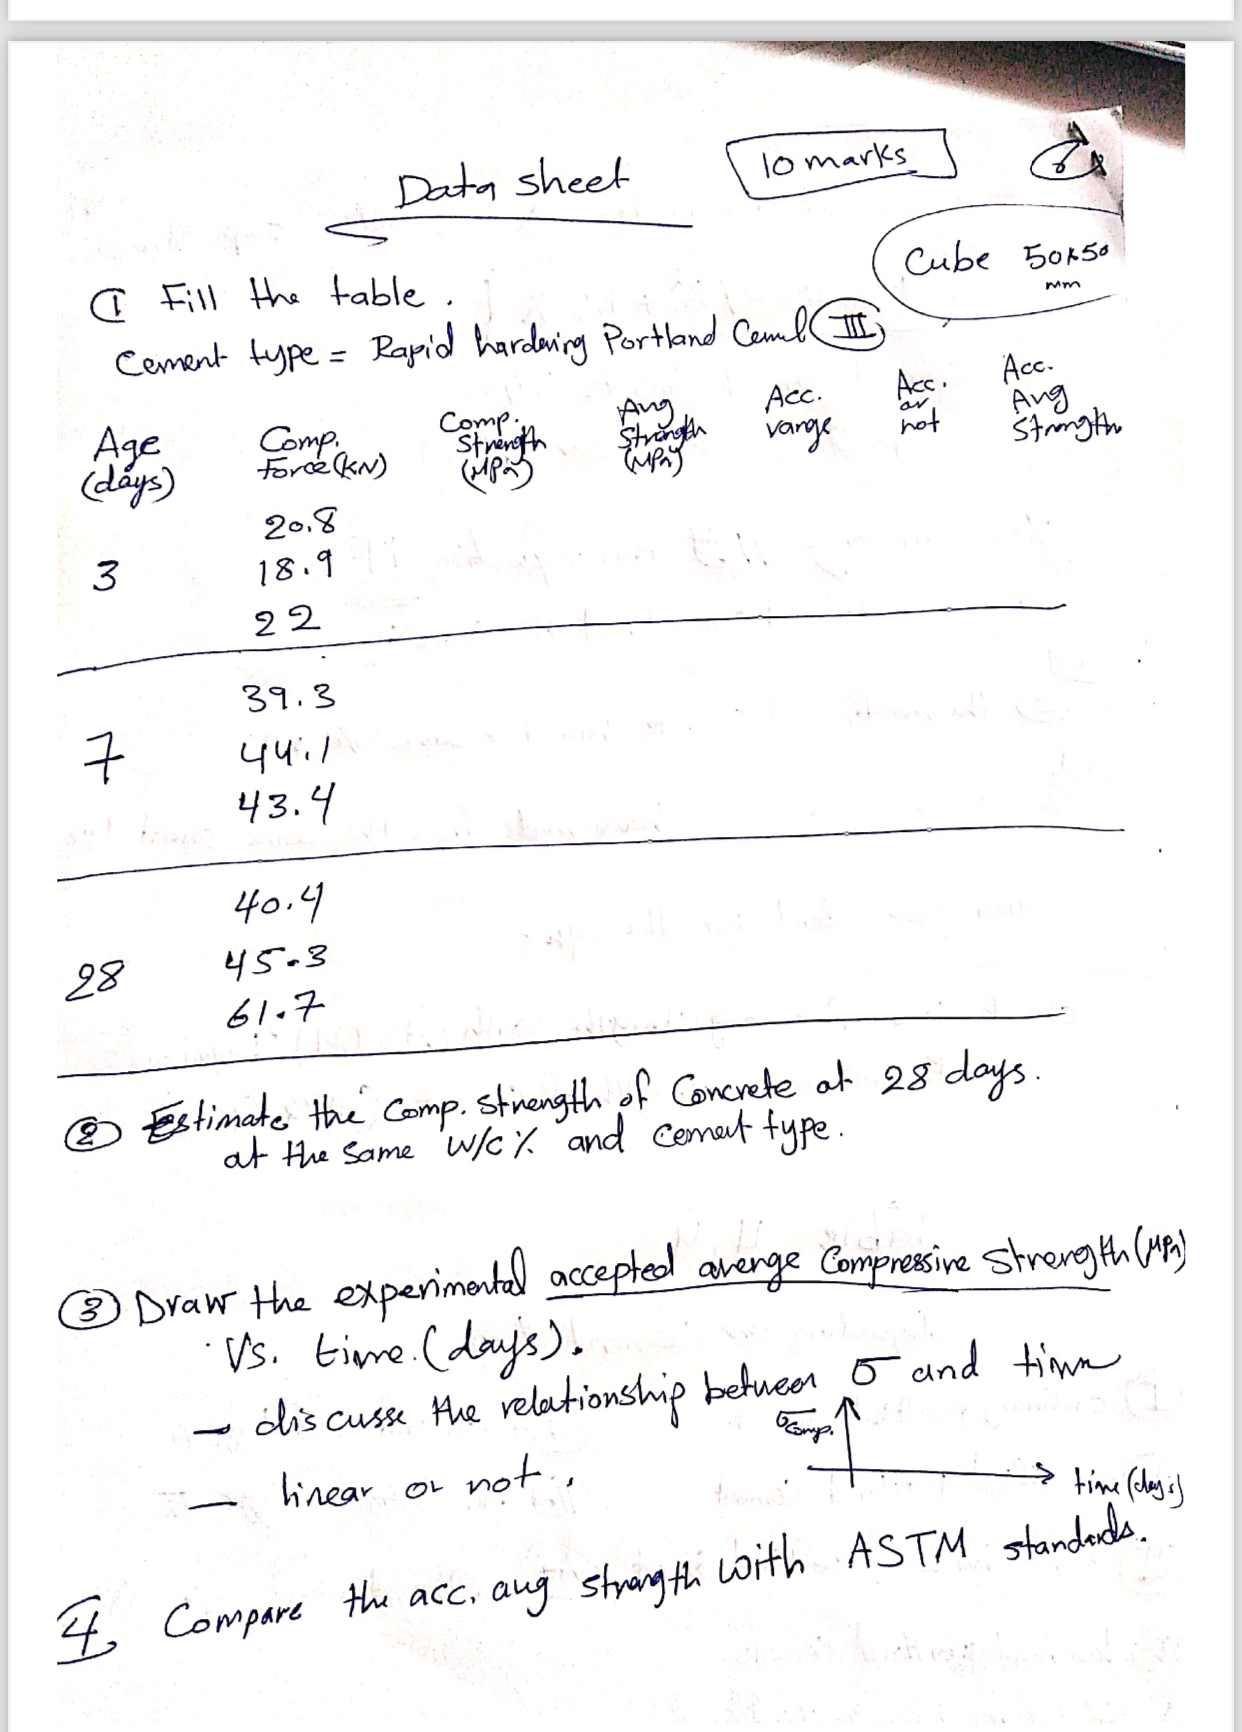 Data sheet
10 marks
Cube 50x50
mm
① Fill the table.
Cement type = Rapid hardening Portland Cement III
Age
(days)
Comp.
Force (KN)
Comp.
Strength
(MPa)
Avg
Strength
(MPa)
Acc.
range
Acc.
or
not
Acc.
Avg
Strength
20.8
3 18.9
22
39.3
7 44.1
43.4
40.4
28 45.3
61.7
② Estimate the Comp. strength of Concrete at 28 days.
at the same W/C % and cement type.
③ Draw the experimental accepted average Compressive Strength (MPa)
Vs. time (days).
– discusse the relationship between σ and time
– linear or not.
σcomp.
time (days)
4 Compare the acc. avg strength with ASTM standards.